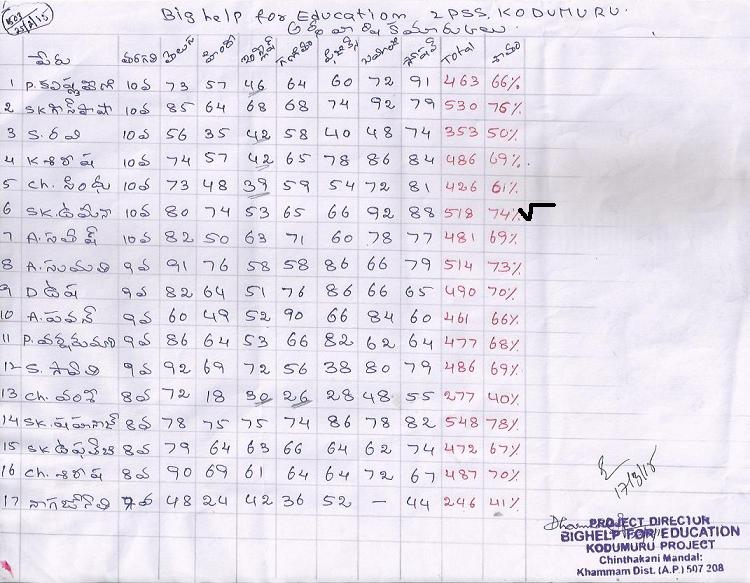 25/8/15
Big help for Education ZPSS. KODUMURU.
పేరు తరగతి తెలుగు హిందీ ఇంగ్లీష్ గణితం సోషల్ Total
1 P. 10వ 73 57 46 64 60 72 91 463 66%
2 SK 10వ 85 64 68 68 74 92 79 530 76%
3 S. రవి 10వ 56 35 42 58 40 48 74 353 50%
4 K శిరీష 10వ 74 57 42 65 78 86 84 486 69%
5 Ch. సింధు 10వ 73 48 39 59 54 72 81 426 61%
6 SK. 10వ 80 74 53 65 66 92 88 518 74% √
7 A. సతీష్ 10వ 82 50 63 71 60 78 77 481 69%
8 A. సుమతి 9వ 91 76 58 58 86 66 79 514 73%
9 D ఉష 9వ 82 64 51 76 86 66 65 490 70%
10 A. పవన్ 9వ 60 49 52 90 66 84 60 461 66%
11 P. 9వ 86 64 53 66 82 62 64 477 68%
12 S. 9వ 92 69 72 56 38 80 79 486 69%
13 Ch. వంశీ 8వ 72 18 30 26 28 48 55 277 40%
14 SK. 8వ 78 75 75 74 86 78 82 548 78%
15 SK 8వ 79 64 63 66 64 62 74 472 67%
16 Ch. శిరీష 8వ 90 69 61 64 64 72 67 487 70%
17 7వ 48 24 42 36 52 - 44 246 41%
17/8/15
PROJECT DIRECTOR
BIGHELP FOR EDUCATION
KODUMURU PROJECT
Chinthakani Mandal:
Khammam Dist. (A.P.) 507 208